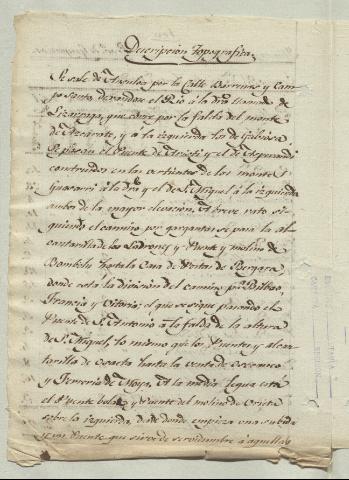 Descripcion Topografica.
Se sale de por la Calle Barrena y Cam
po Santo dexando el Rio á la dra llamado de
que corre por la falda del monte
de Azcarate, y á la izquierda los de
Se pasan el Puente de y el de
construidos en las vertientes de los montes
á la dra y el de Sn Miguel á la izquierda
ambos de la mayor elevacion. A breve rato si
guiendo el camino por gargantas se pasa la al
cantarilla de los Ladrones y Puente y molino de
hasta la Casa de Postas de Bergara
donde esta la division del camino pa Bilbao,
Francia y Vitoria; el que se sigue pasando el
Puente de S. Antonio á la falda de la altura
de Sn Miguel, lo mismo que los Puentes y alcan
tarilla de hasta la venta de
y Ferreria de A la media legua esta
el Puente y Puente del molino de
sobre la izquierda, desde donde empieza una subida
y un Puente que sirve de servidumbre á aquellas